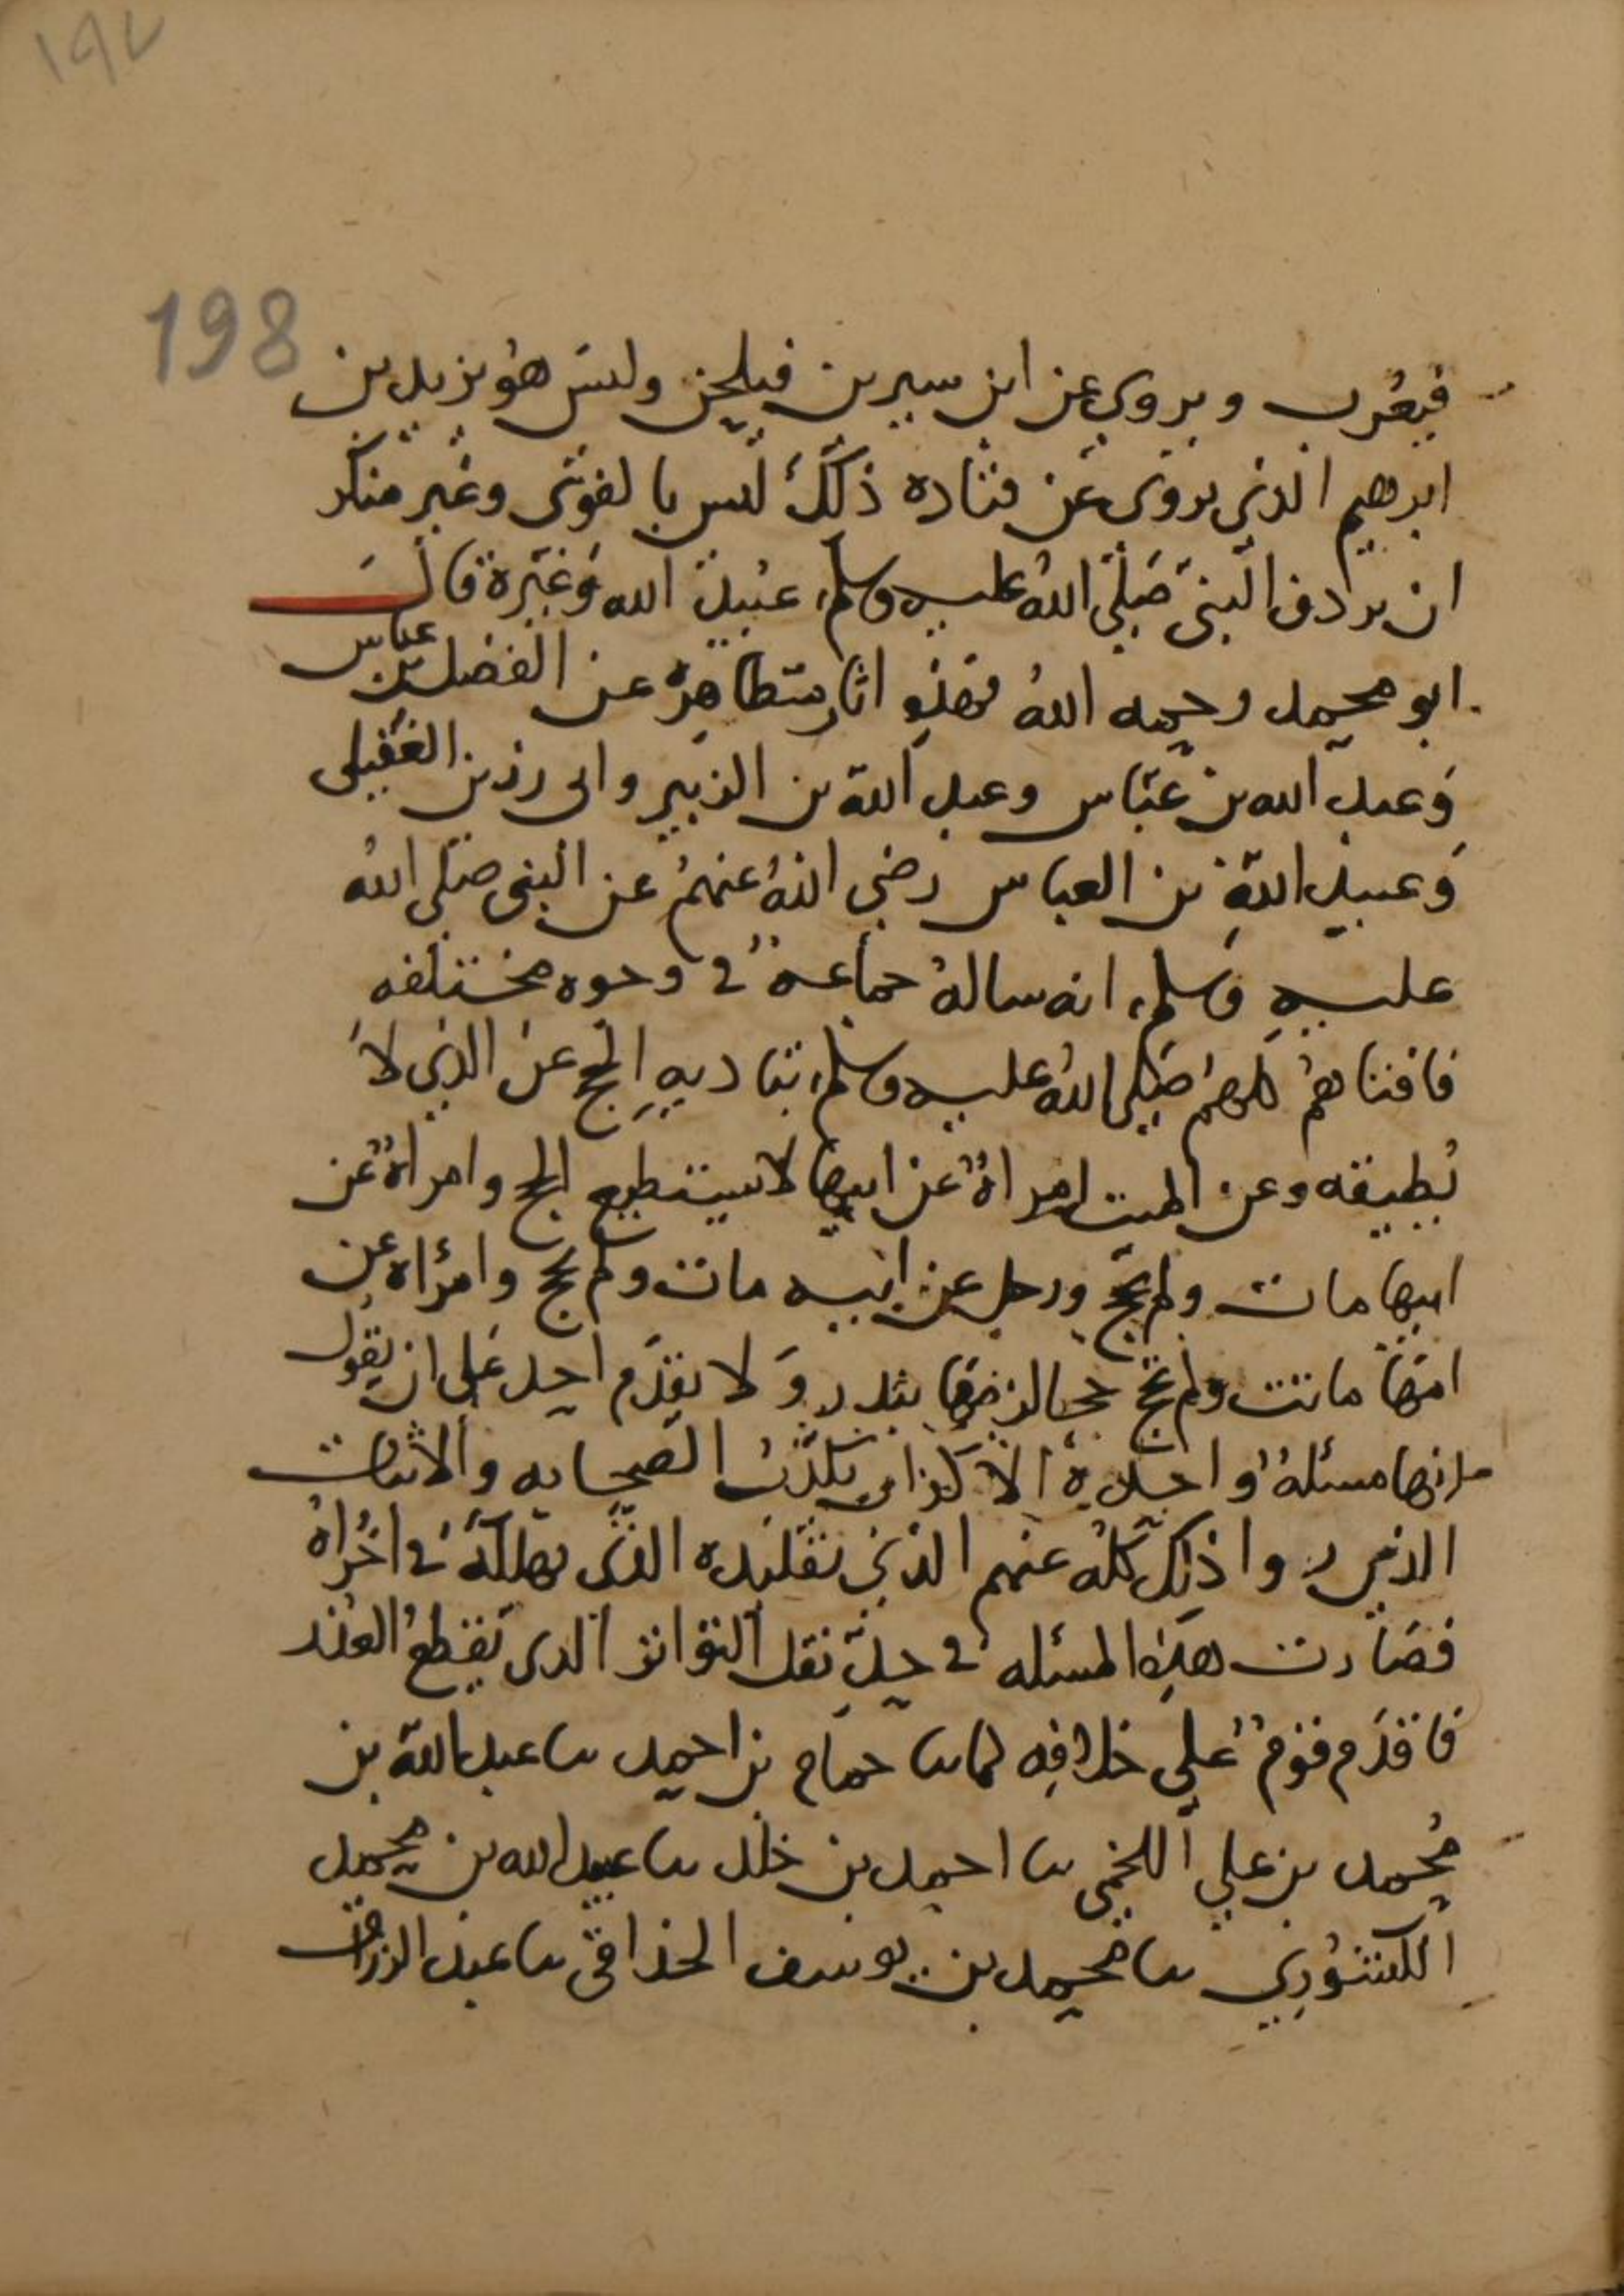 ١٩٧
198
فيعرب ويروي عن ابن سيرين فيلحن وليس هو يزيد بن
ابرهيم الذي يروي عن قتاده ذلك ليس بالقوي وغير منكر
ان يردف النبي صلى الله عليه وسلم عبيد الله وغيره قال
ابو محمد رحمه الله فهذه اثار متظاهرة عن الفضل بن عباس
وعبد الله بن عباس وعبد الله بن الزبير وابي رزين العقيلي
وعبيد الله بن العباس رضي الله عنهم عن النبي صلى الله
عليه وسلم انه ساله جماعة في وجوه مختلفه
فافتاهم كلهم صلى الله عليه وسلم بتاديه الحج عن الذي لا
يطيقه وعن الميت امراة عن ابيها لا يستطيع الحج وامراة عن
ابيها مات ولم يحج ورجل عن ابيه مات ولم يحج وامراه عن
امها ماتت ولم تحج حجا بنذر ولا يقدم احد على ان يقول
انها مسئلة واحدة الا كذاب يكذب الصحابه والاثبات
الذين رووا ذلك كله عنهم
فصارت هذه المسئله في حد نقل التواتر الذي يقطع العذر
فاقدم قوم على خلافه لما نا حمام بن احمد نا عبد الله بن
محمد بن علي اللخمي نا احمد بن خلد نا عبيد الله بن محمد
الكشوري نا محمد بن يوسف الحذاقي نا عبد الرزاق